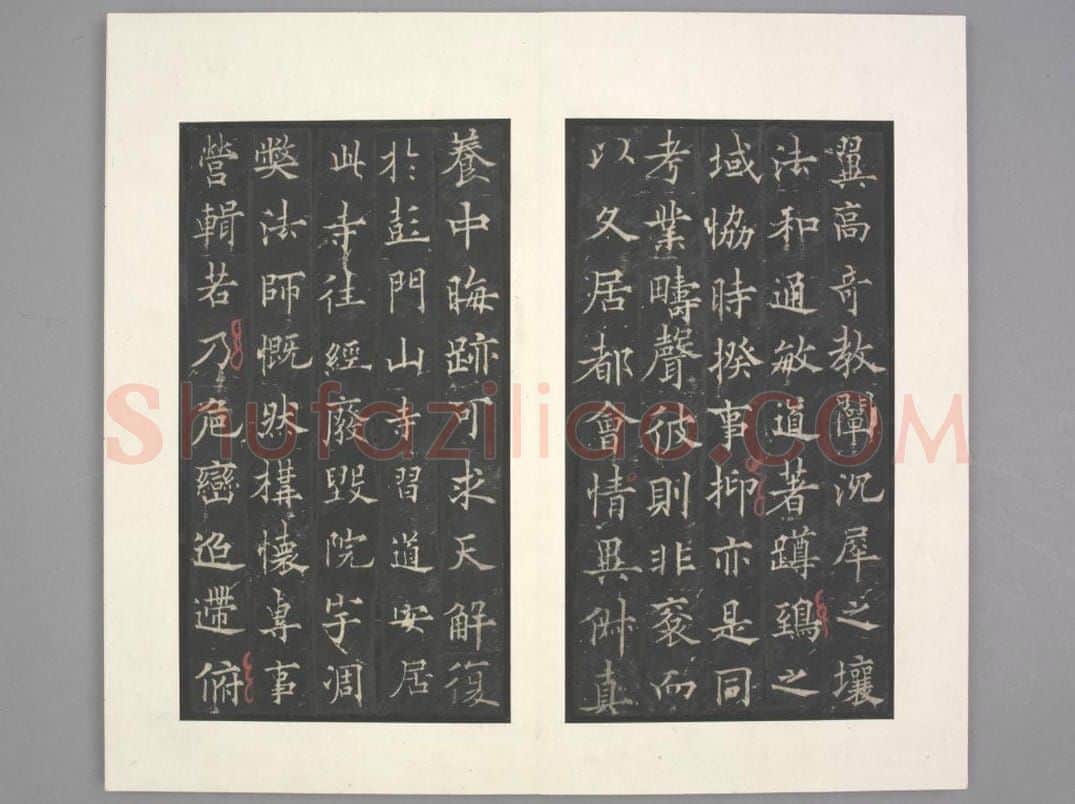 翼高奇教闡沉犀之壤
法和通敏道著蹲鵄之
域恊時揆事抑亦是同
考業疇聲彼則非衮而
以久居都會情異㑣真
養中晦跡可求天解復
於彭門山寺習道安居
此寺往經廢毀院宇凋
弊法師慨然構懷專事
營輯若乃危巒迊遰俯
Shufaziliao.COM